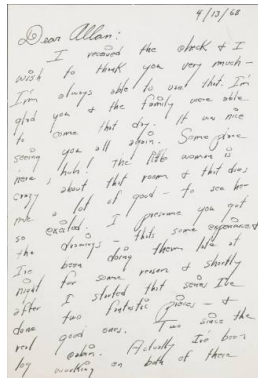 4/13/68
Dear Allan:
I received the check & I
wish to thank you very much -
I'm always able to use that. I'm
glad you & the family were able
to come that day. It was nice
seeing you all again. Some place
here, huh! The little woman is
crazy about that room & that does
me a lot of good - to see her
so excited. I presume you got
the drawings - that's some experience
I've been doing them late at
night for some reason & shortly
after I started that series I've
done two fantastic pieces - &
real good ones. Two since the
Actually I've been
by working on both of these